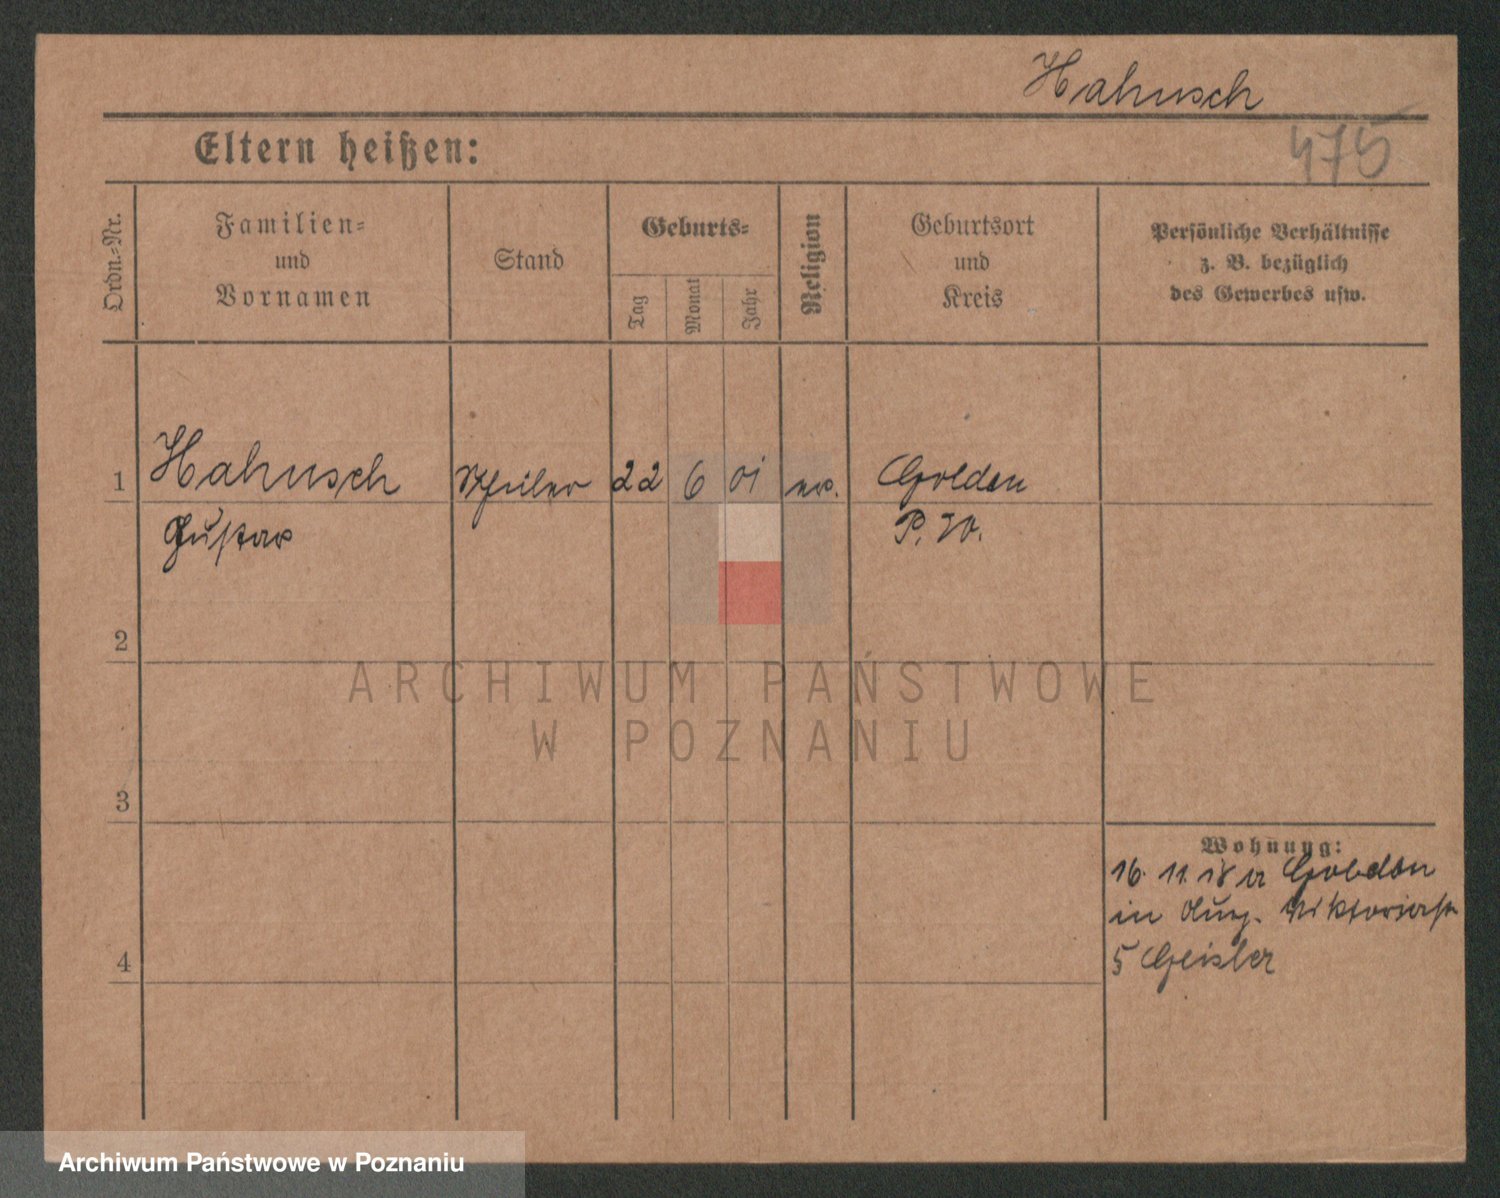 Hahnsch
475
Eltern heißen:
Ordn.-Nr.
Familien-
und
Vornamen
Stand
Geburts-
Tag
Monat
Jahr
Religion
Geburtsort
und
Kreis
Persönliche Verhältnisse
z. B. bezüglich
des Gewerbes usw.
1 Hahnsch Schüler 22 6 01 ev. Golden
Gustav P. W.
2
3
4
Wohnung:
16. 11. 18 Golden
in Viktoriastr
5 Geisler
ARCHIWUM PAŃSTWOWE
W POZNANIU
Archiwum Państwowe w Poznaniu